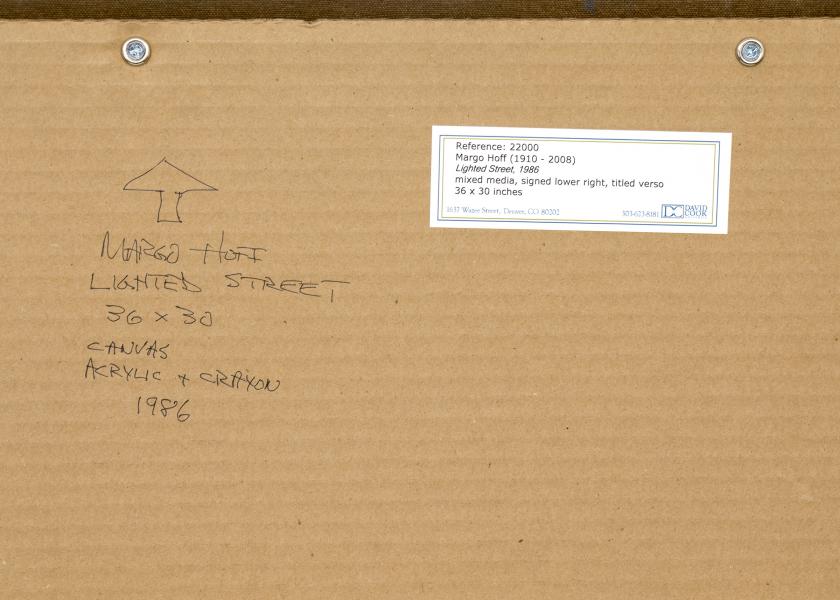 MARGO HOFF
LIGHTED STREET
36 x 30
CANVAS
ACRYLIC + CRAYON
1986
Reference: 22000
Margo Hoff (1910 - 2008)
Lighted Street, 1986
mixed media, signed lower right, titled verso
36 x 30 inches
1637 Wazee Street, Denver, CO 80202
303-623-8181
DC
DAVID
COOK